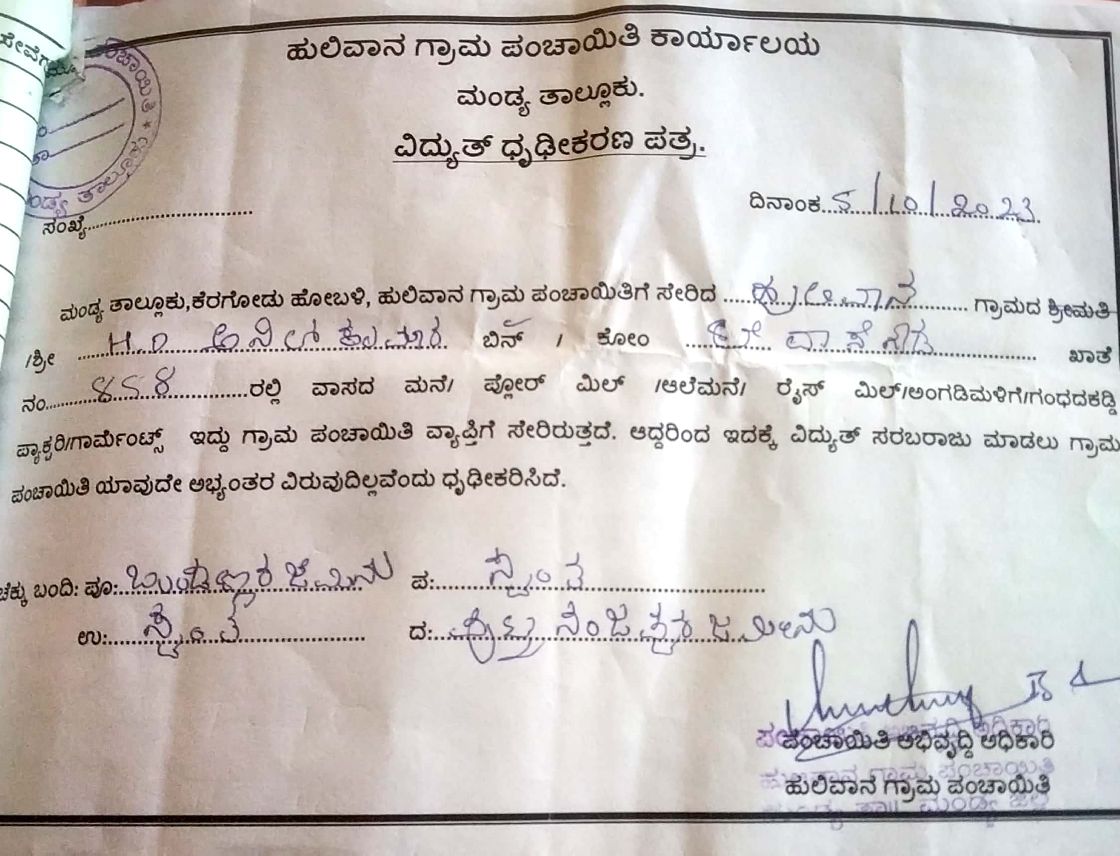 ಹುಲಿವಾನ ಗ್ರಾಮ ಪಂಚಾಯಿತಿ ಕಾರ್ಯಾಲಯ
ಮಂಡ್ಯ ತಾಲ್ಲೂಕು.
ವಿದ್ಯುತ್ ಧೃಢೀಕರಣ ಪತ್ರ.
ದಿನಾಂಕ...5/10/2023
ಸಂಖ್ಯೆ..............................
ಮಂಡ್ಯ ತಾಲ್ಲೂಕು,ಕೆರಗೋಡು ಹೋಬಳಿ, ಹುಲಿವಾನ ಗ್ರಾಮ ಪಂಚಾಯಿತಿಗೆ ಸೇರಿದ .....ಹುಲಿವಾನ......... ಗ್ರಾಮದ ಶ್ರೀಮತಿ
/ಶ್ರೀ ....H.D ಅನಿಲ್ ಕುಮಾರ ಬಿನ್ / ಕೋಂ ............... ಖಾತೆ
ನಂ......858..........ರಲ್ಲಿ ವಾಸದ ಮನೆ/ ಪ್ಲೋರ್ ಮಿಲ್ /ಆಲೆಮನೆ/ ರೈಸ್ ಮಿಲ್/ಅಂಗಡಿಮಳಿಗೆ/ಗಂಧದಕಡ್ಡಿ
ಪ್ಯಾಕ್ಟರಿ/ಗಾರ್ಮೆಂಟ್ಸ್ ಇದ್ದು ಗ್ರಾಮ ಪಂಚಾಯಿತಿ ವ್ಯಾಪ್ತಿಗೆ ಸೇರಿರುತ್ತದೆ. ಆದ್ದರಿಂದ ಇದಕ್ಕೆ ವಿದ್ಯುತ್ ಸರಬರಾಜು ಮಾಡಲು ಗ್ರಾಮ
ಪಂಚಾಯಿತಿ ಯಾವುದೇ ಅಭ್ಯಂತರ ವಿರುವುದಿಲ್ಲವೆಂದು ಧೃಢೀಕರಿಸಿದೆ.
ಚೆಕ್ಕು ಬಂದಿ: ಪೂ:........ ಜಮೀನು ಪ:......ಸ್ವಂತ..........
ಉ:....ಸ್ವಂತ............ ದ:........ ಜಮೀನು
ಪಂಚಾಯಿತಿ ಅಭಿವೃದ್ಧಿ ಅಧಿಕಾರಿ
ಹುಲಿವಾನ ಗ್ರಾಮ ಪಂಚಾಯಿತಿ